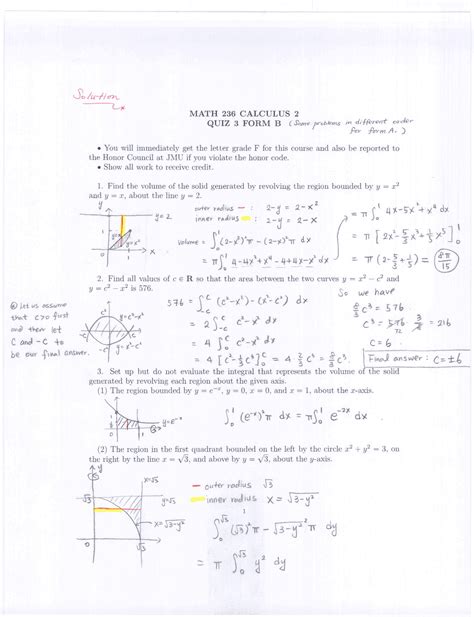 Solution
MATH 236 CALCULUS 2
QUIZ 3 FORM B (Same problems in different order
for form A.)
• You will immediately get the letter grade F for this course and also be reported
to the Honor Council at JMU if you violate the honor code.
• Show all work to receive credit.
1. Find the volume of the solid generated by revolving the region bounded by y = x²
and y = x, about the line y = 2.
y
y=2
1
y=x
y=x²
0
1
x
outer radius — : 2-y = 2-x²
inner radius : 2-y = 2-x
Volume = ∫₀¹ (2-x²)²π - (2-x)²π dx
= π∫₀¹ 4-4x²+x⁴-4+4x-x² dx
= π∫₀¹ 4x-5x²+x⁴ dx
= π [2x²-5/3 x³+1/5 x⁵]₀¹
= π (2-5/3+1/5) = 8π/15
2. Find all values of c ∈ R so that the area between the two curves y = x² − c² and
y = c² − x² is 576.
@ let us assume
that c>0 first
and then let
C and -C to
be our final answer.
c²
y=c²-x²
-c
c
y=x²-c²
576 = ∫₋c^c (c²-x²)-(x²-c²) dx
= 2∫₋c^c c²-x² dx
= 4∫₀^c c²-x² dx
= 4 [c²-1/3c³]₀^c = 4 2/3 c³ = 8/3 c³.
So we have
8/3 c³ = 576
c³ = 576 3/8 = 216
72
C = 6.
Final answer: C=±6
3. Set up but do not evaluate the integral that represents the volume of the solid
generated by revolving each region about the given axis.
(1) The region bounded by y = e⁻ˣ, y = 0, x = 0, and x = 1, about the x-axis.
1
y=e⁻ˣ
0
1
∫₀¹ (e⁻ˣ)²π dx = π∫₀¹ e⁻²ˣ dx
(2) The region in the first quadrant bounded on the left by the circle x² + y² = 3, on
the right by the line x = √3, and above by y = √3, about the y-axis.
y
x=√3
√3
y=√3
x=√3-y²
0
√3
— outer radius √3
inner radius x = √3-y²
∫₀^√3 (√3)²π - √3-y²² π dy
= π ∫₀^√3 y² dy